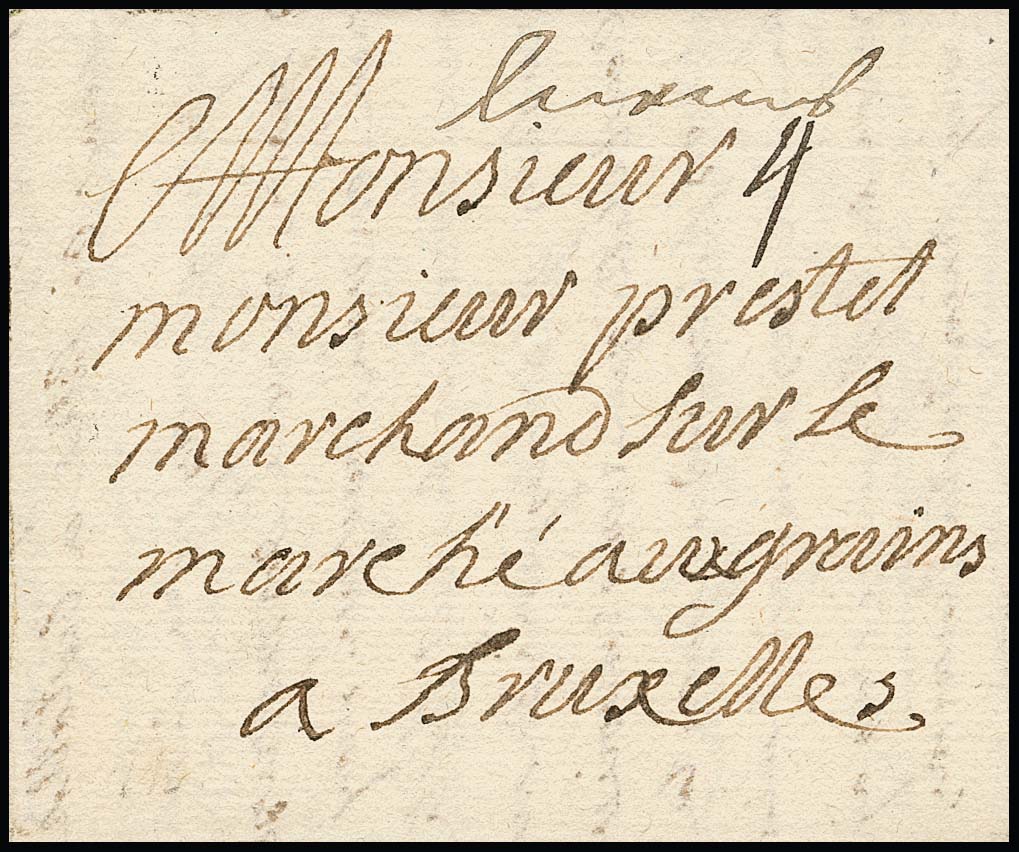 luxemb
Monsieur 4
monsieur prestet
marchand sur le
marché aux grains
a Bruxelles